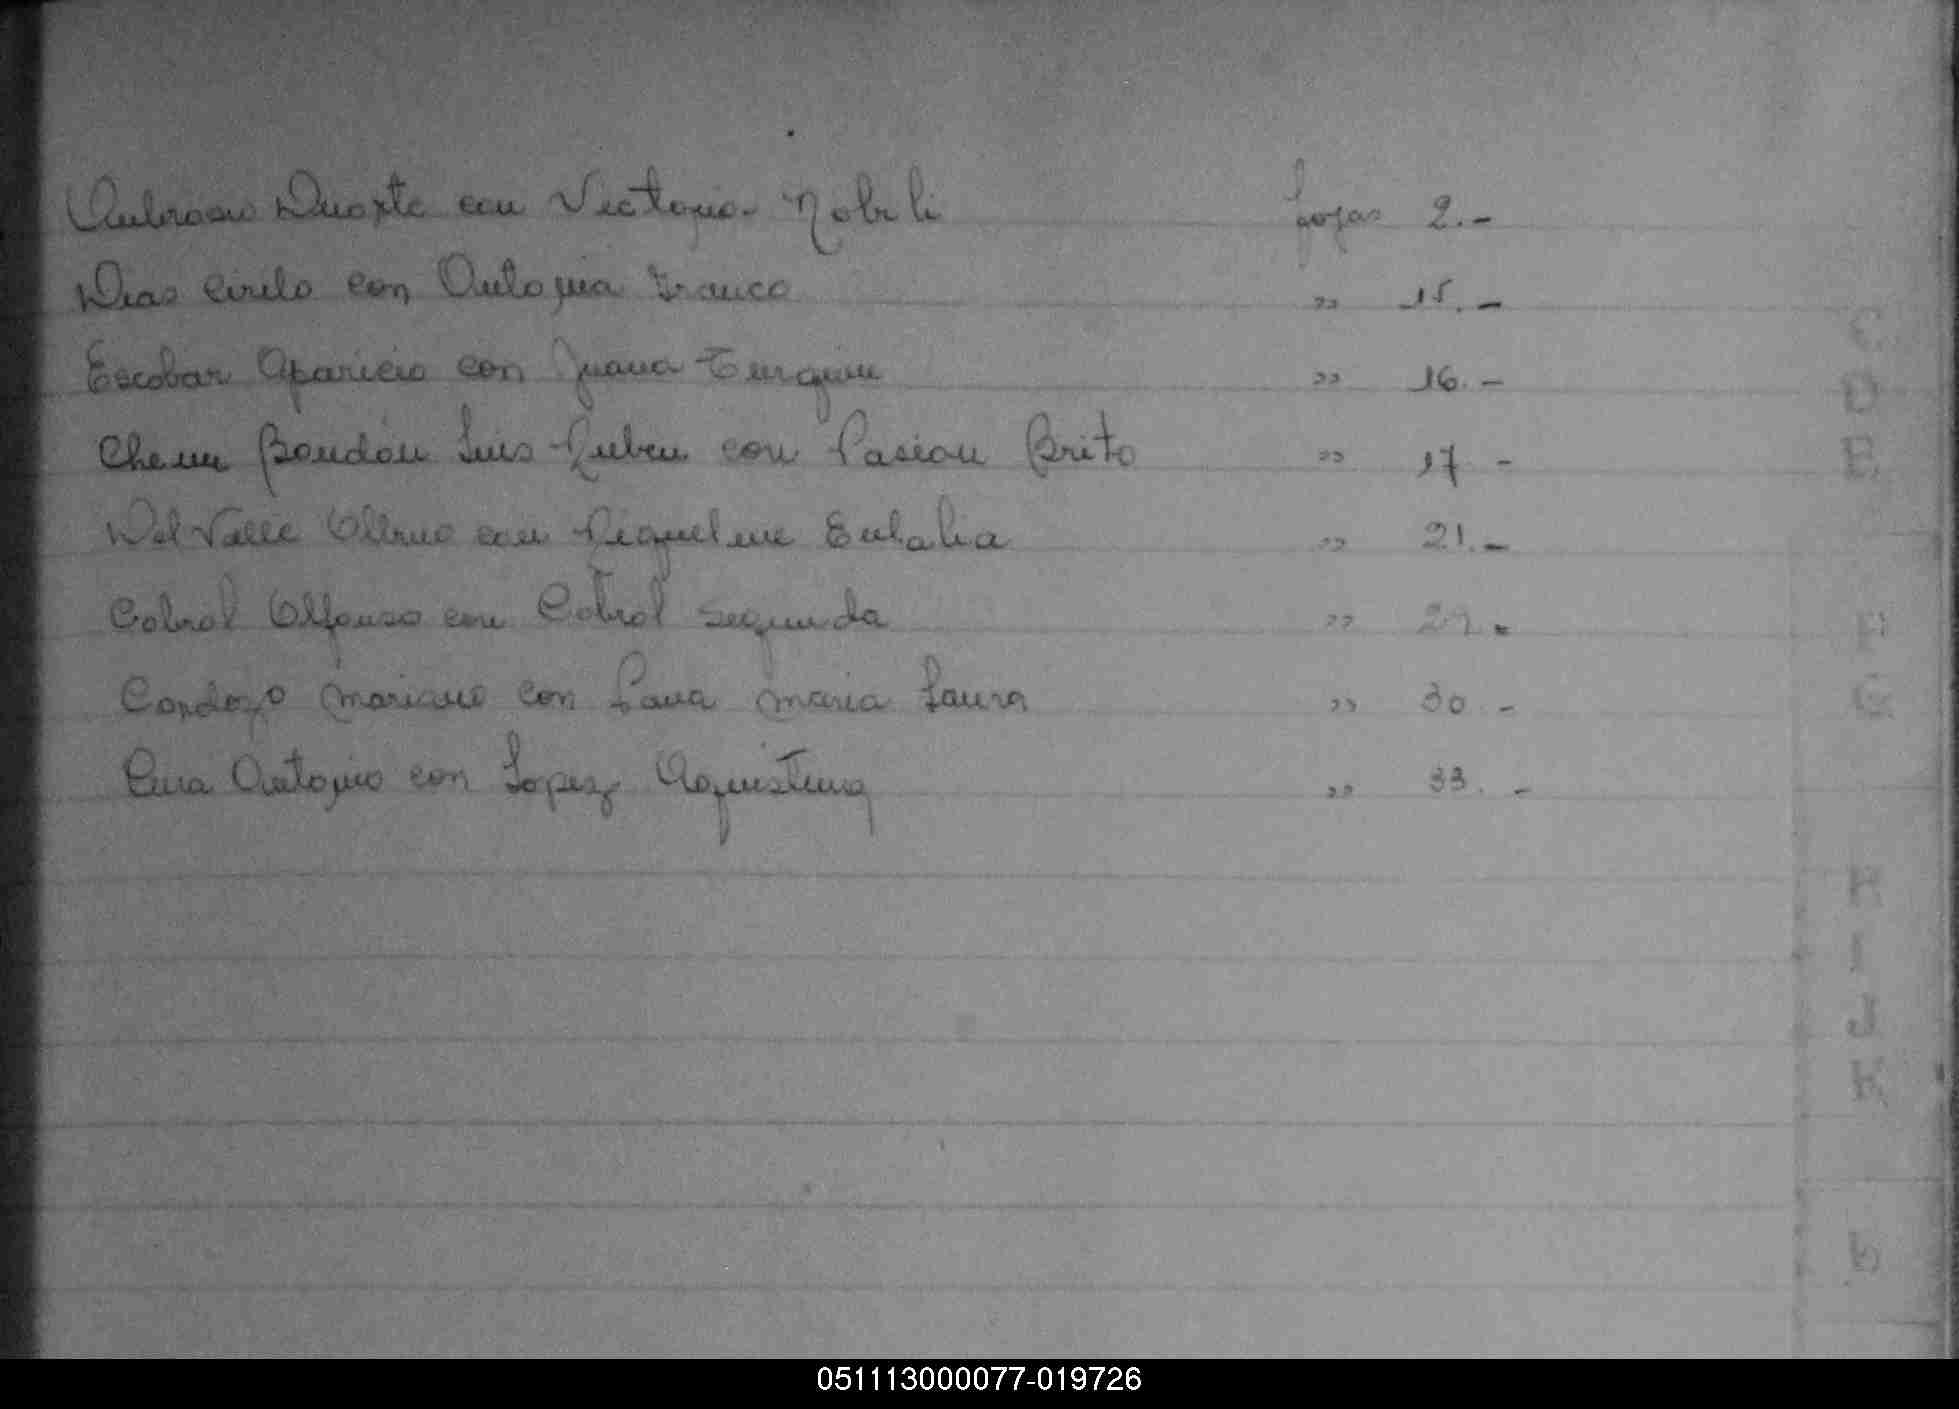 Duarte con Victoria Nobili fojas 2.-
Dias Cirilo con Antonia Franco " 15.-
Escobar Aparicio con Juana " 16.-
Roudón Luis Ruben con Pasion Brito " 17 -
Del Valle con Riquelme Eulalia " 21.-
Cabral Alfonso con Cabral Segunda " 29.-
Cardozo Mariano con Maria Laura " 30.-
Antonio con Lopez Agustina " 33.-
C
D
E
F
G
H
I
J
K
L
051113000077-019726